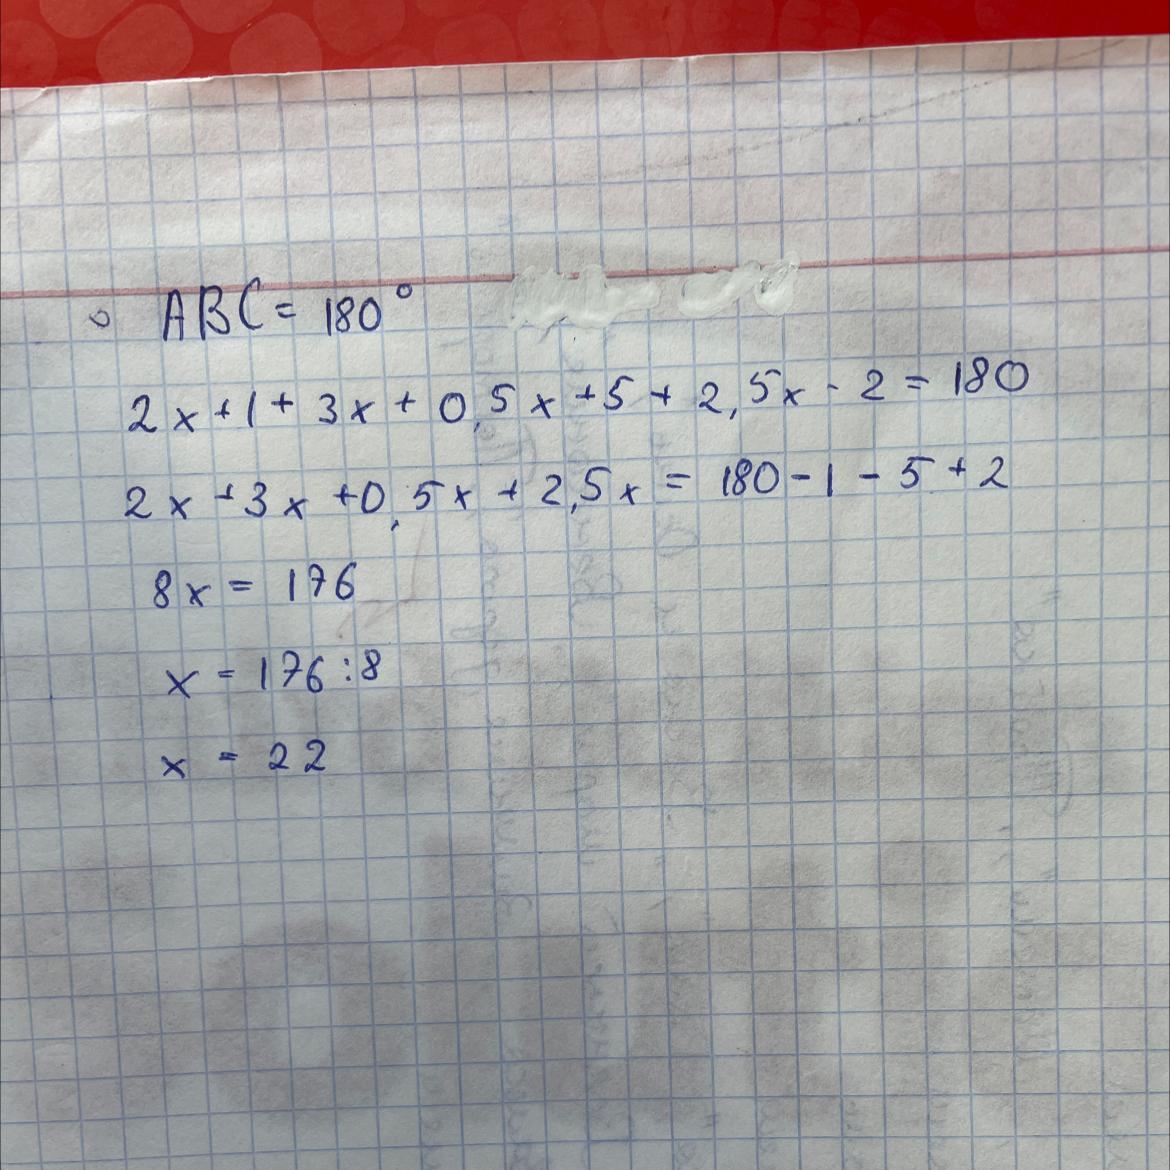 ABC = 180°
2x + 1 + 3x + 0,5x + 5 + 2,5x - 2 = 180
2x + 3x + 0,5x + 2,5x = 180 - 1 - 5 + 2
8x = 176
x = 176 : 8
x = 22